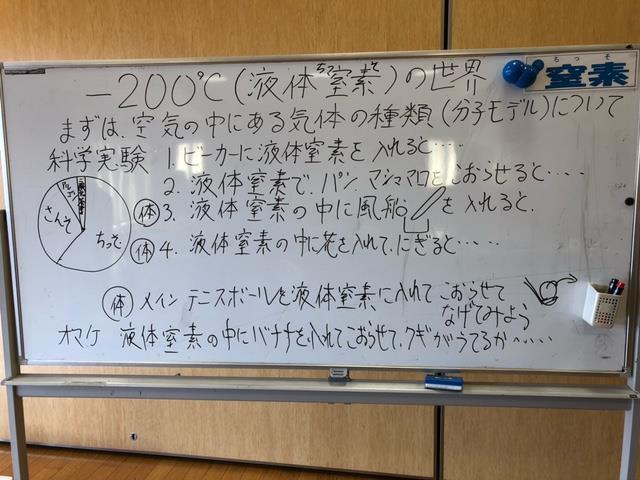 −200℃(液体窒素)の世界
ちっそ
ちっそ
窒素
まずは、空気の中にある気体の種類(分子モデル)について
科学実験 1. ビーカーに液体窒素を入れると‥‥
2. 液体窒素で、パン、マシマロをこおらせると‥‥
体 3. 液体窒素の中に風船を入れると、
体 4. 液体窒素の中に花を入れて、にぎると‥‥
さんそ
ちっそ
体 メイン テニスボールを液体窒素に入れて こおらせて
なげてみよう
オマケ 液体窒素の中にバナナを入れてこおらせて、クギがうてるか‥‥